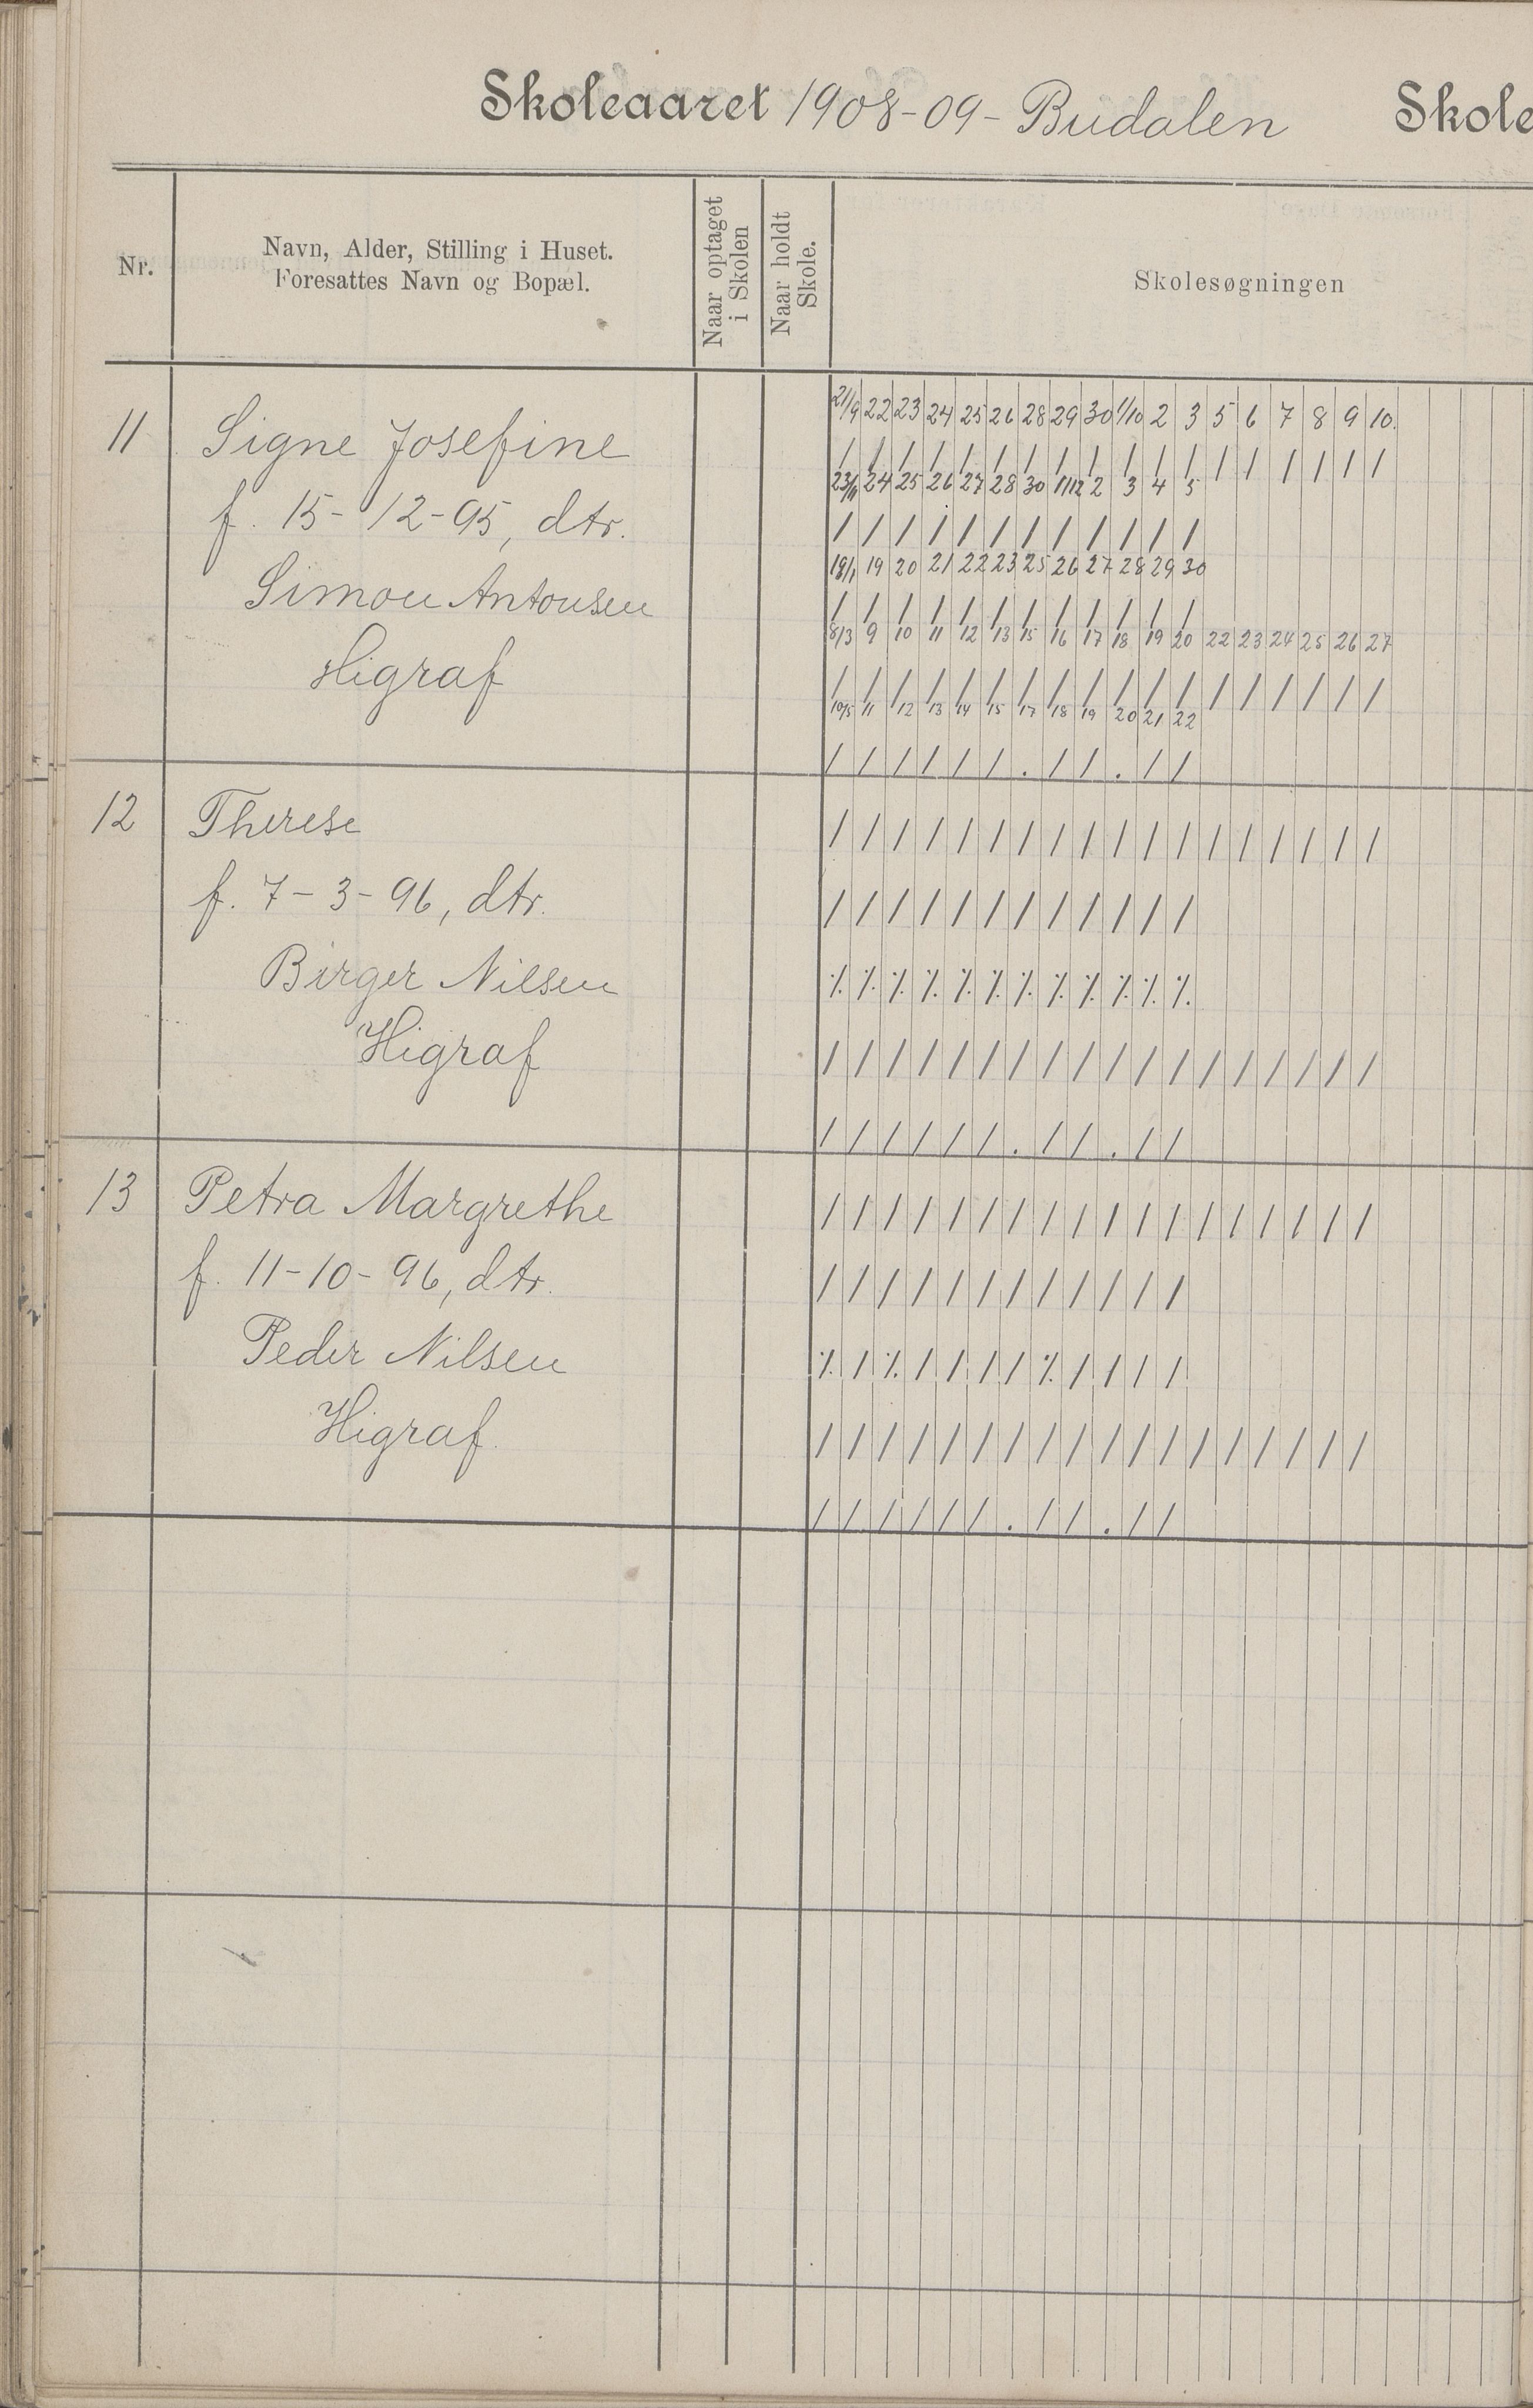 Skoleaaret 1908-09- Budalen Skole
Nr.
Navn, Alder, Stilling i Huset.
Foresattes Navn og Bopæl.
Naar optaget
i Skolen
Naar holdt
Skole.
Skolesøgningen
21/9 22 23 24 25 26 28 29 30 1/10 2 3 5 6 7 8 9 10.
11 Signe Josefine / / / / / / / / / / / / / / / / / /
23/11 24 25 26 27 28 30 1/12 2 3 4 5
f. 15-12-95, dtr. / / / / / / / / / / / /
18/1 19 20 21 22 23 25 26 27 28 29 30
Simon Antonsen / / / / / / / / / / / /
8/3 9 10 11 12 13 15 16 17 18 19 20 22 23 24 25 26 27
Higraf / / / / / / / / / / / / / / / / / /
10/5 11 12 13 14 15 17 18 19 20 21 22
/ / / / / / . / / . / /
12 Therese / / / / / / / / / / / / / / / / / /
f. 7-3-96, dtr. / / / / / / / / / / / /
Birger Nilsen ⁒ ⁒ ⁒ ⁒ ⁒ ⁒ ⁒ ⁒ ⁒ ⁒ ⁒ ⁒
Higraf / / / / / / / / / / / / / / / / / /
/ / / / / / . / / . / /
13 Petra Margrethe / / / / / / / / / / / / / / / / / /
f. 11-10-96, dtr. / / / / / / / / / / / /
Peder Nilsen ⁒ / ⁒ / / / / ⁒ / / / /
Higraf. / / / / / / / / / / / / / / / / / /
/ / / / / / . / / . / /